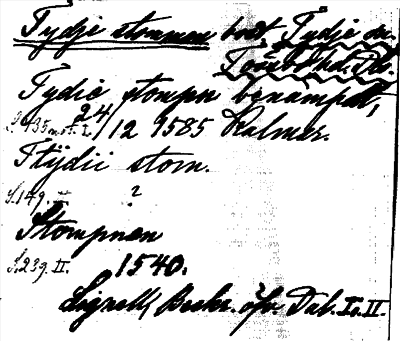 Tydje stommen bodt Tydje sn.
Tydie stompn benämpd,
S. 435 not. I. 24/12 1585 Kalmar.
Ttÿdii stom.
S. 149. II. ?
Stompnen
S. 239. II. 1540.
Lignell, Beskr. öfv. Dal. I. o. II.